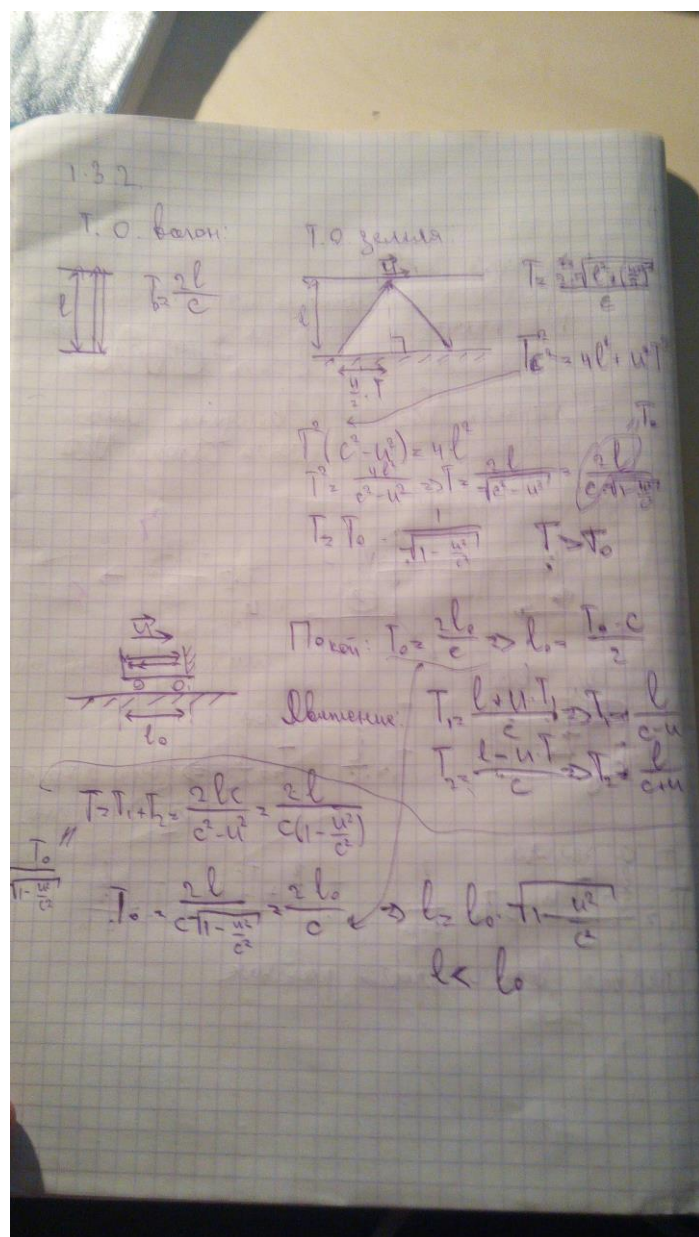 1.3.2.
Т. О. вагон:
Т. О. земля
l
T₀ = 2l/c
u⃗
l
u/2 · T
T = 2·√(l² + (uT/2)²)/c
T²c² = 4l² + u²T²
T²(c² - u²) = 4l²
T² = 4l²/(c² - u²) => T = 2l/√(c² - u²) = 2l/(c·√(1 - u²/c²))
= T₀
T = T₀ · 1/√(1 - u²/c²)
T > T₀
u⃗
l₀
Покой: T₀ = 2l₀/c => l₀ = T₀·c/2
Движение: T₁ = (l + u·T₁)/c => T₁ = l/(c - u)
T₂ = (l - u·T)/c => T₂ = l/(c + u)
T = T₁ + T₂ = 2lc/(c² - u²) = 2l/(c(1 - u²/c²))
T₀/√(1 - u²/c²)
T₀ = 2l/(c√(1 - u²/c²)) = 2l₀/c => l = l₀·√(1 - u²/c²)
l < l₀